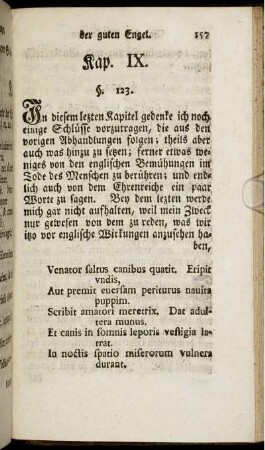 der guten Engel. 157
Kap. IX.
§. 123.
In diesem lezten Kapitel gedenke ich noch
einige Schlüsse vorzutragen, die aus den
vorigen Abhandlungen folgen; theils aber
auch was hinzu zu sezen; ferner etwas we-
niges von den englischen Bemühungen im
Tode des Menschen zu berühren; und end-
lich auch von dem Ehrenreiche ein paar
Worte zu sagen. Bey dem lezten werde
mich gar nicht aufhalten, weil mein Zweck
nur gewesen von dem zu reden, was wir
izo vor englische Wirkungen anzusehen ha-
ben,
Venator saltus canibus quatit. Eripit
vndis,
Aut premit euersam periturus nauita
puppim.
Scribit amatori meretrix. Dat adul-
tera munus.
Et canis in somnis leporis vestigia la-
trat.
In noctis spatio miserorum vulnera
durant.